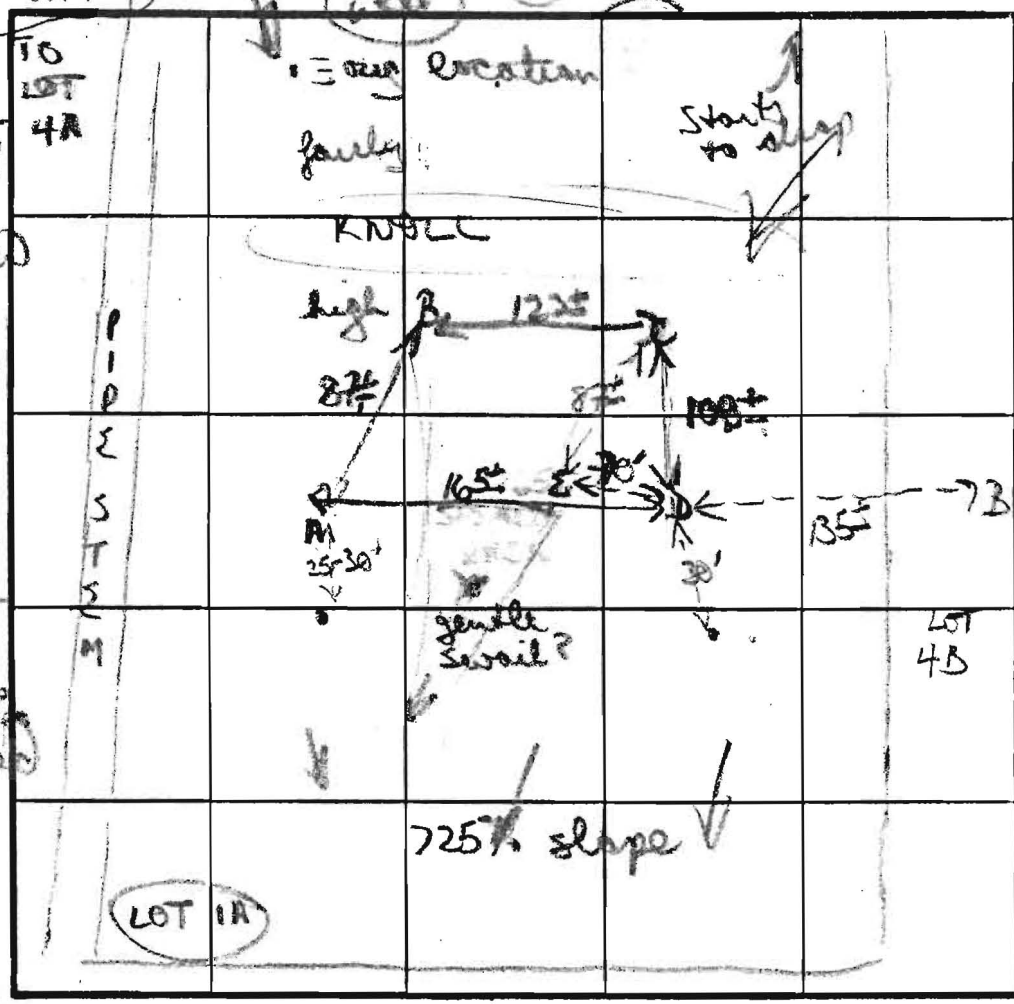 TO
LOT
4A
location
fairly
Starts
to drop
KNOLL
high B 122±
87±
87±
108±
PIPE STEM
165± E 30' D
135± 7B
A
25-30'
30'
gentle
swail?
LOT
4B
725% slope
LOT 1A